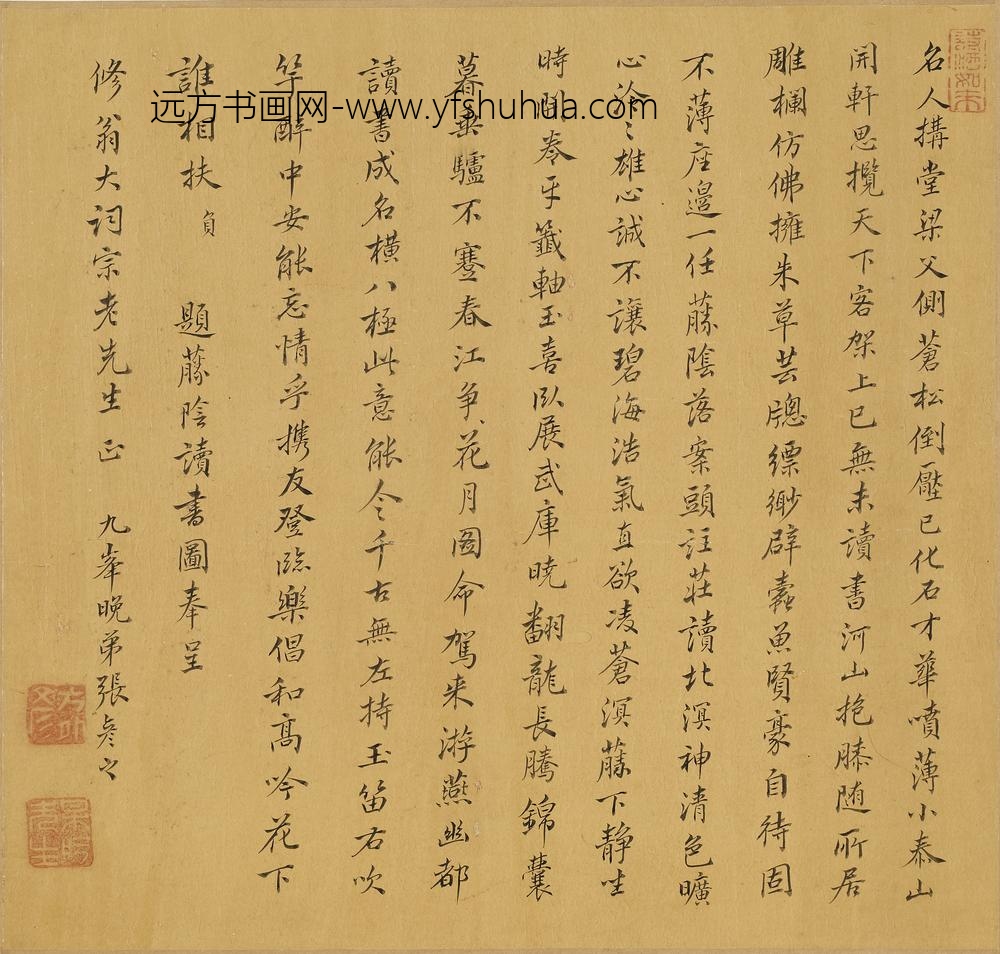 名人搆堂梁父側蒼松倒壓已化石才華噴薄小泰山
開軒思攬天下客架上已無未讀書河山抱膝随所居
雕欄仿佛擁朱草芸牕縹緲辟蠹魚賢豪自待固
不薄座邉一任藤陰落案頭註莊讀北溟神清色曠
心泠之雄心誠不讓碧海浩氣直欲凌蒼溟藤下静坐
時開卷牙籤軸玉喜臥展武庫暁翻龍長騰錦囊
暮垂驢不蹇春江争花月图命駕来游燕幽都
讀書成名横八極此意能令千古無左持玉笛右吹
竽醉中安能忘情乎携友登臨樂倡和高吟花下
誰相扶 負 題藤陰讀書圖奉呈
修翁大词宗老先生正 九峯晚弟張彦之
远方书画网-www.yfshuhua.com